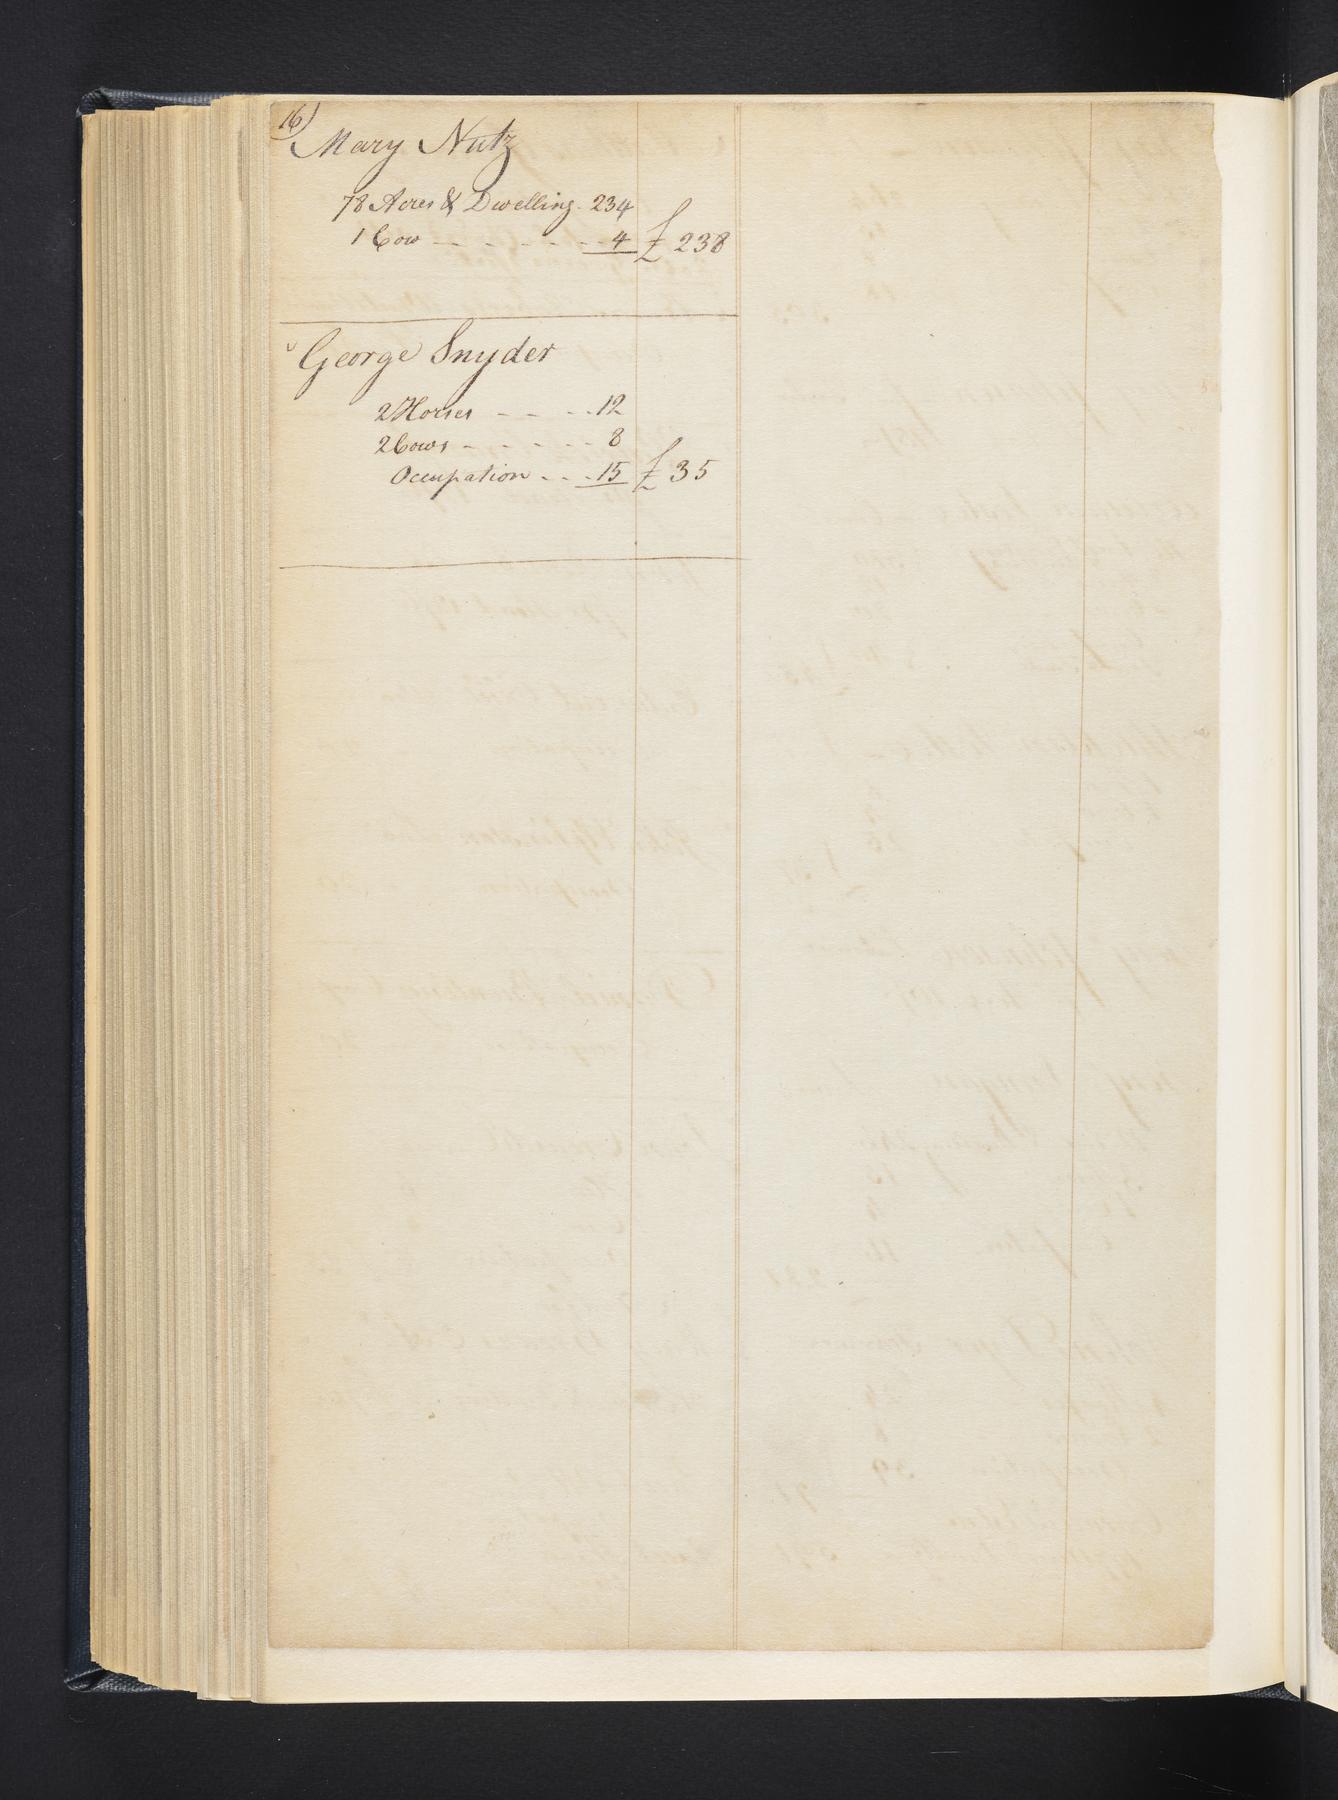 16)
Mary Nutz
78 Acres & Dwelling. 234
1 Cow - - - - - - 4 £ 238
George Snyder
2 Horses - - - - 12
2 Cows - - - - - 8
Occupation - - - 15 £ 35